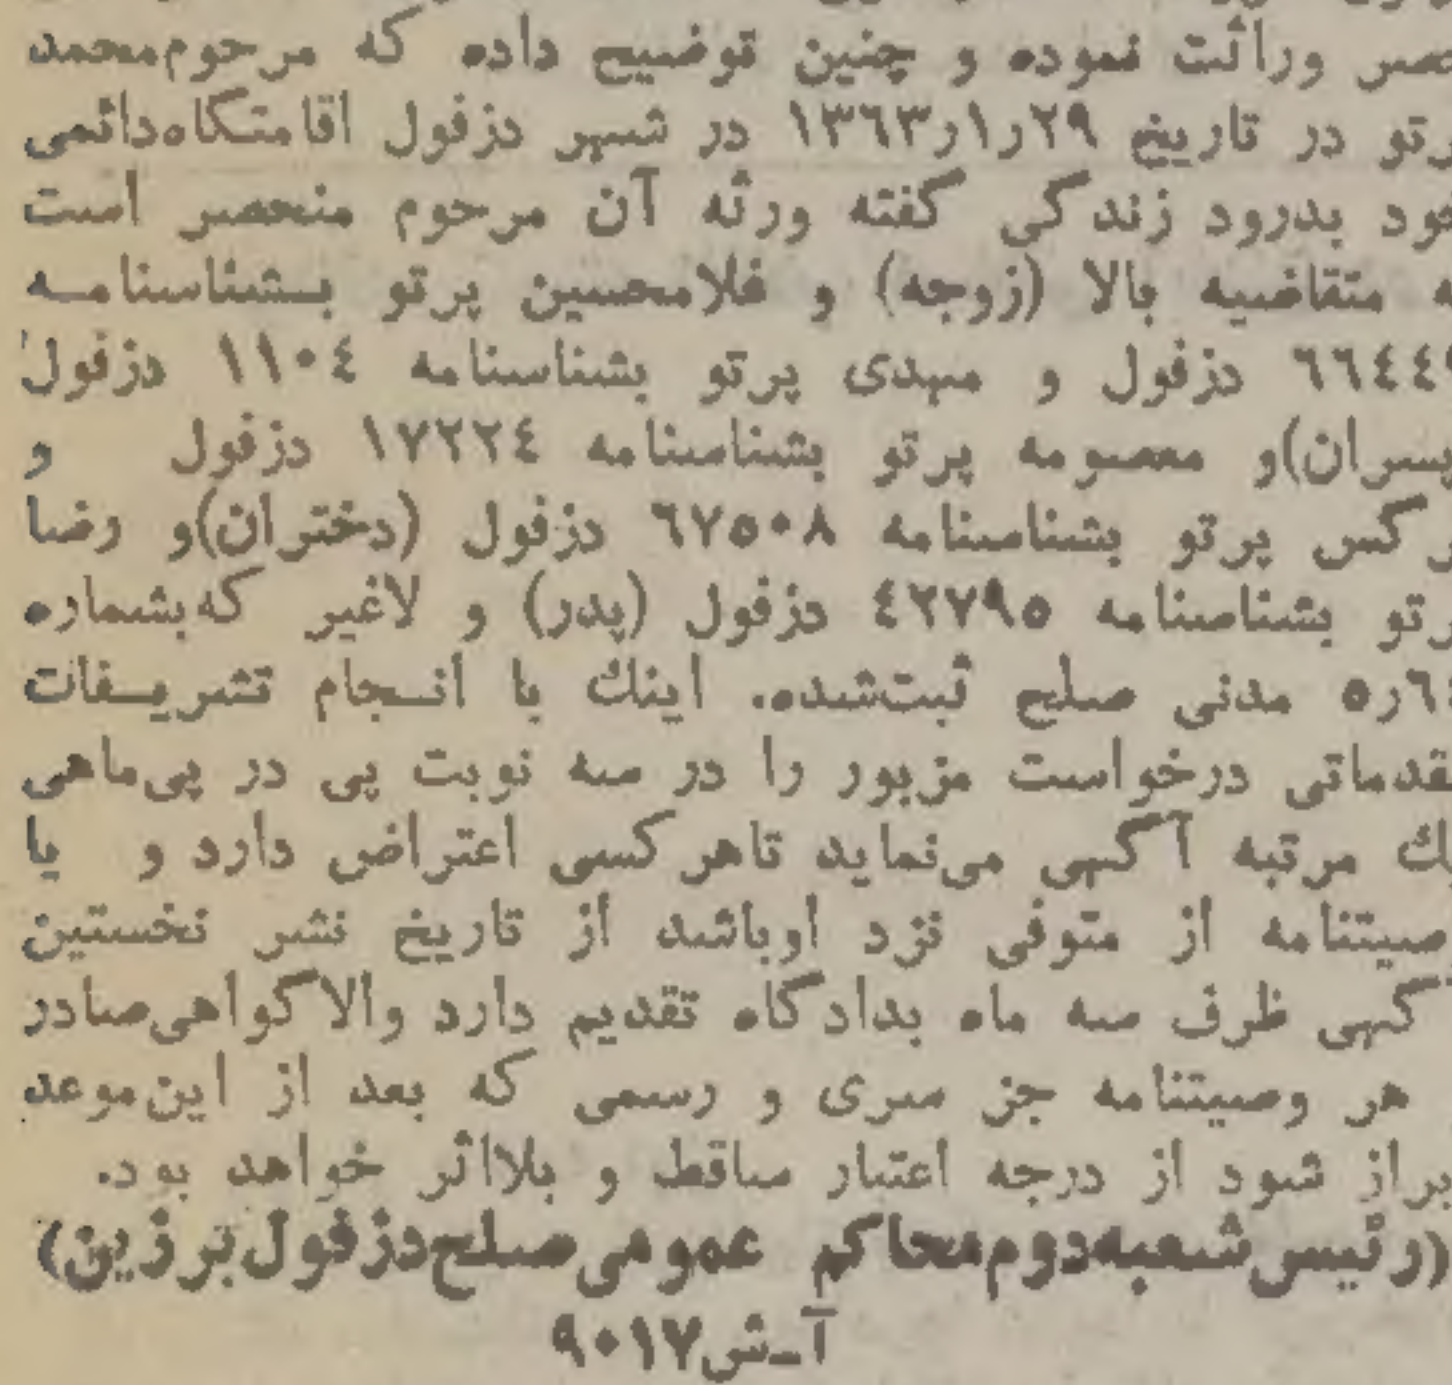 حصر وراثت نموده و چنین توضیح داده که مرحوم محمد
پرتو در تاریخ ۲۹ر۱ر۱۳۶۳ در شهر دزفول اقامتگاه دائمی
خود بدرود زندگی گفته ورثه آن مرحوم منحصر است
به متقاضیه بالا (زوجه) و غلامحسین پرتو بشناسنامه
۶۶۴۴۹ دزفول و مهدی پرتو بشناسنامه ۱۱۰۴ دزفول
(پسران) و معصومه پرتو بشناسنامه ۱۷۲۲۴ دزفول و
نرگس پرتو بشناسنامه ۶۷۵۰۸ دزفول (دختران) و رضا
پرتو بشناسنامه ۴۲۷۹۵ دزفول (پدر) و لاغیر که بشماره
مدنی صلح ثبت شده. اینك با انجام تشریفات
مقدماتی درخواست مزبور را در سه نوبت پی در پی ماهی
یك مرتبه آگهی می‌نماید تا هر کسی اعتراض دارد و یا
وصیتنامه از متوفی نزد او باشد از تاریخ نشر نخستین
آگهی ظرف سه ماه بدادگاه تقدیم دارد والا گواهی صادر
و هر وصیتنامه جز سری و رسمی که بعد از این موعد
ابراز شود از درجه اعتبار ساقط و بلااثر خواهد بود.
(رئیس شعبه دوم محاکم عمومی صلح دزفول برزین)
آ-ش۹۰۱۷